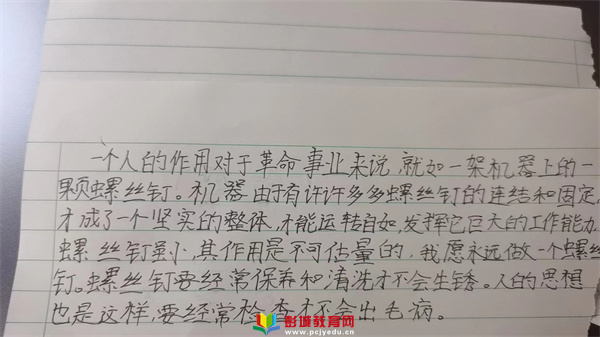 一个人的作用对于革命事业来说,就如一架机器上的一
颗螺丝钉。机器由于有许许多多螺丝钉的连结和固定,
才成了一个坚实的整体,才能运转自如,发挥它巨大的工作能力.
螺丝钉虽小,其作用是不可估量的,我愿永远做一个螺丝
钉。螺丝钉要经常保养和清洗才不会生锈。人的思想
也是这样,要经常检查才不会出毛病。
彭城教育网
www.pcjyedu.cn